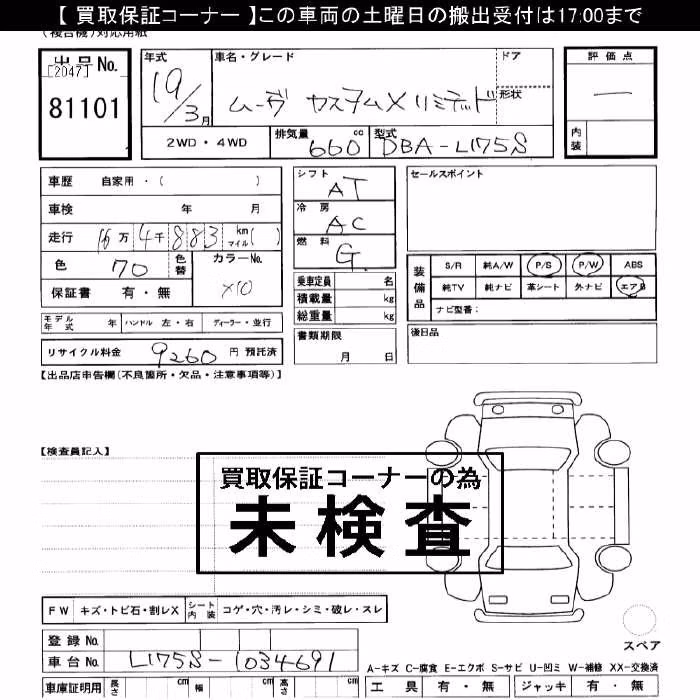 【 買取保証コーナー 】この車両の土曜日の搬出受付は17:00まで
(複合機)対応用紙
出品No.
[2047]
81101
年式
19/3月
車名・グレード
ムーヴ カスタムX リミテッド
ドア
形状
評価点
―
内装
2WD・4WD
排気量
660 cc
型式
DBA-L175S
車歴 自家用・( )
車検 年 月
走行 16万4千883 km マイル( )
色 70 色替
カラーNo. X10
保証書 有・無
シフト AT
冷房 AC
燃料 G
乗車定員 名
積載量 kg
総重量 kg
書類期限
月 日
セールスポイント
装備品
S/R 純A/W P/S P/W ABS
純TV 純ナビ 革シート 外ナビ エアB
ナビ型番：
後日品
モデル年式 年 ハンドル 左・右 ディーラー・並行
リサイクル料金 9260 円 預託済
【出品店申告欄(不良箇所・欠品・注意事項等)】
【検査員記入】
買取保証コーナーの為
未検査
FW キズ・トビ石・割レX シート内装 コゲ・穴・汚レ・シミ・破レ・スレ
登録No.
車台No. L175S-1034691
車庫証明用 長さ cm 幅 cm 高さ cm
スペア
A-キズ C-腐食 E-エクボ S-サビ U-凹ミ W-補修 XX-交換済
工具 有・無 ジャッキ 有・無